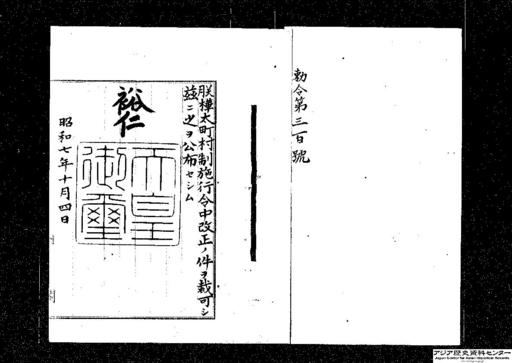 勅令第三百號
朕樺太町村制施行令中改正ノ件ヲ裁可シ
茲ニ之ヲ公布セシム
裕仁
天皇
御璽
昭和七年十月四日
アジア歴史資料センター
Japan Center for Asian Historical Records